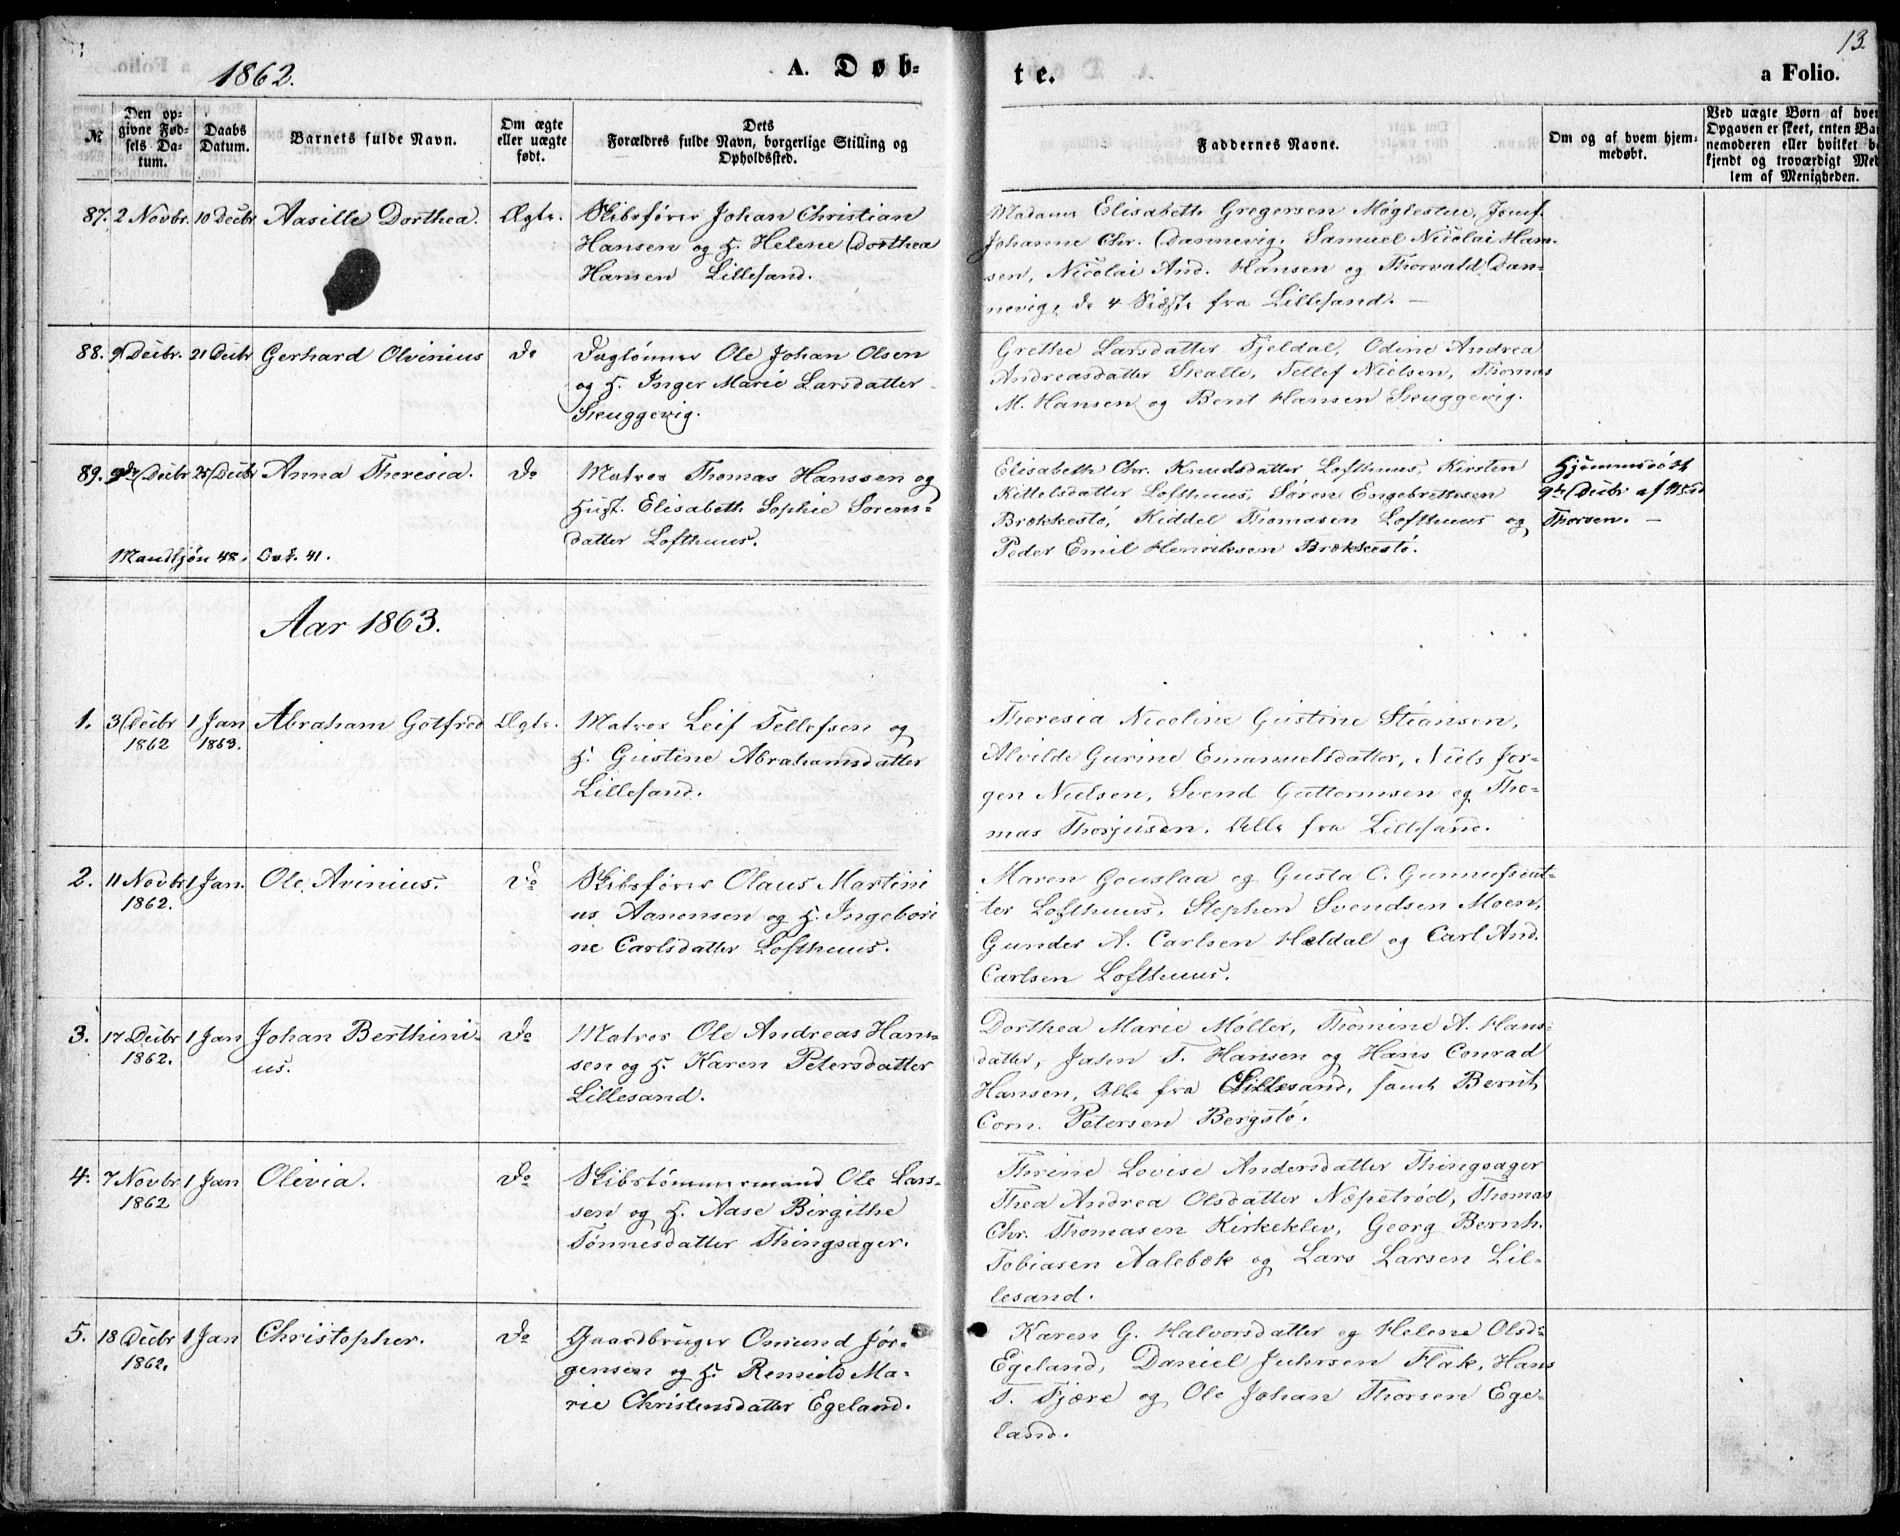 1862.
A. Døb-
te.
13.
a Folio.
№
Den op-
givne Fød-
sels Da-
tum.
Daabs
Datum.
Barnets fulde Navn.
Om ægte
eller uægte
født.
Dets
Forældres fulde Navn, borgerlige Stilling og
Opholdssted.
Faddernes Navne.
Om og af hvem hjem-
medøbt.
Ved uægte Børn af hvem
Opgaven er skeet, enten Bar
nemoderen eller hvilket be
kjendt og troværdigt Med
lem af Menigheden.
87. 2 Novbr. 10 Decbr Aasille Dorthea. Ægte.
Skibsfører Johan Christian
Hansen og H. Helene Dorthea
Hansen Lillesand.
Madame Elisabeth Gregersen Møglestue, Jomf.
Johanne Chr. Dannevig, Samuel Nicolai Han-
sen, Nicolai And. Hansen og Thorvald Dan-
nevig, de 4 Sidste fra Lillesand. —
88. 9 Decbr. 21 Decbr Gerhard Olvinius Do
Daglønner Ole Johan Olsen
og H. Inger Marie Larsdatter
Skuggevig.
Grethe Larsdatter Fjeldal, Odine Andrea
Andreasdatter Skalle, Tellef Nielsen, Thomas
M. Hansen og Bent Hansen Skuggevig.
89. 9de Decbr 25 Decbr Anna Theresia. Do
Matros Thomas Hanssen og
Hust. Elisabeth Sophie Sørens-
datter Lofthuus.
Elisabeth Chr. Knudsdatter Lofthuus, Kirsten
Kittelsdatter Lofthuus, Søren Engebrettesen
Brekkestø, Kiddel Thomasen Lofthuus og
Peder Emil Henriksen Brækkestø.
Hjemmedøbt
9de Decbr af
Thorsen. —
Mandkjøn 48. Qvk. 41.
Aar 1863.
1. 3 Decbr 1 Jan Abraham Gotfred Ægte.
1862 1863.
Matros Leif Tellefsen og
H. Gustine Abrahamsdatter
Lillesand.
Theresia Nicoline Gustine Stiansen,
Alvilde Gurine Emanuelsdatter, Niels Jør-
gen Nielsen, Svend Guttormsen og Tho-
mas Thorjusen. Alle fra Lillesand.
2. 11 Novbr 1 Jan. Ole Avinius. Do
1862.
Skibsfører Olaus Martini
us Aanonsen og H. Ingebori
ne Carlsdatter Lofthuus.
Maren Gouslaa og Gusta C. Gunnufsdat-
ter Lofthuus, Stephen Svendsen Moen,
Gunder A. Carlsen Hældal og Carl And.
Carlsen Lofthuus.
3. 17 Decbr 1 Jan Johan Berthini-
us. Do
1862.
Matros Ole Andreas Han-
sen og H. Karen Petersdatter
Lillesand.
Dorthea Marie Møller, Thomine A. Hans-
datter, Jahn T. Hansen og Hans Conrad
Hansen, Alle fra Lillesand, samt Bernt
Corn. Petersen Bergstø.
4. 7 Novbr 1 Jan Olivia. Do
1862
Skibstømmermand Ole Lars-
sen og H. Aase Birgithe
Tønnesdatter Thingsager.
Thrine Lovise Andersdatter Thingsager
Thea Andrea Olsdatter Næpetrød, Thomas
Chr. Thomasen Kirkeklev, Georg Bernh.
Tobiasen Aalebæk og Lars Larsen Lil-
lesand.
5. 18 Decbr 1 Jan Christopher. Do
1862.
Gaardbruger Omund Jør-
gensen og H. Remild Ma-
rie Christensdatter Egeland.
Karen G. Halvorsdatter og Helene Olsd.
Egeland, Daniel Juhrsen Flak, Hans
T. Fjære og Ole Johan Thorsen Ege-
land.